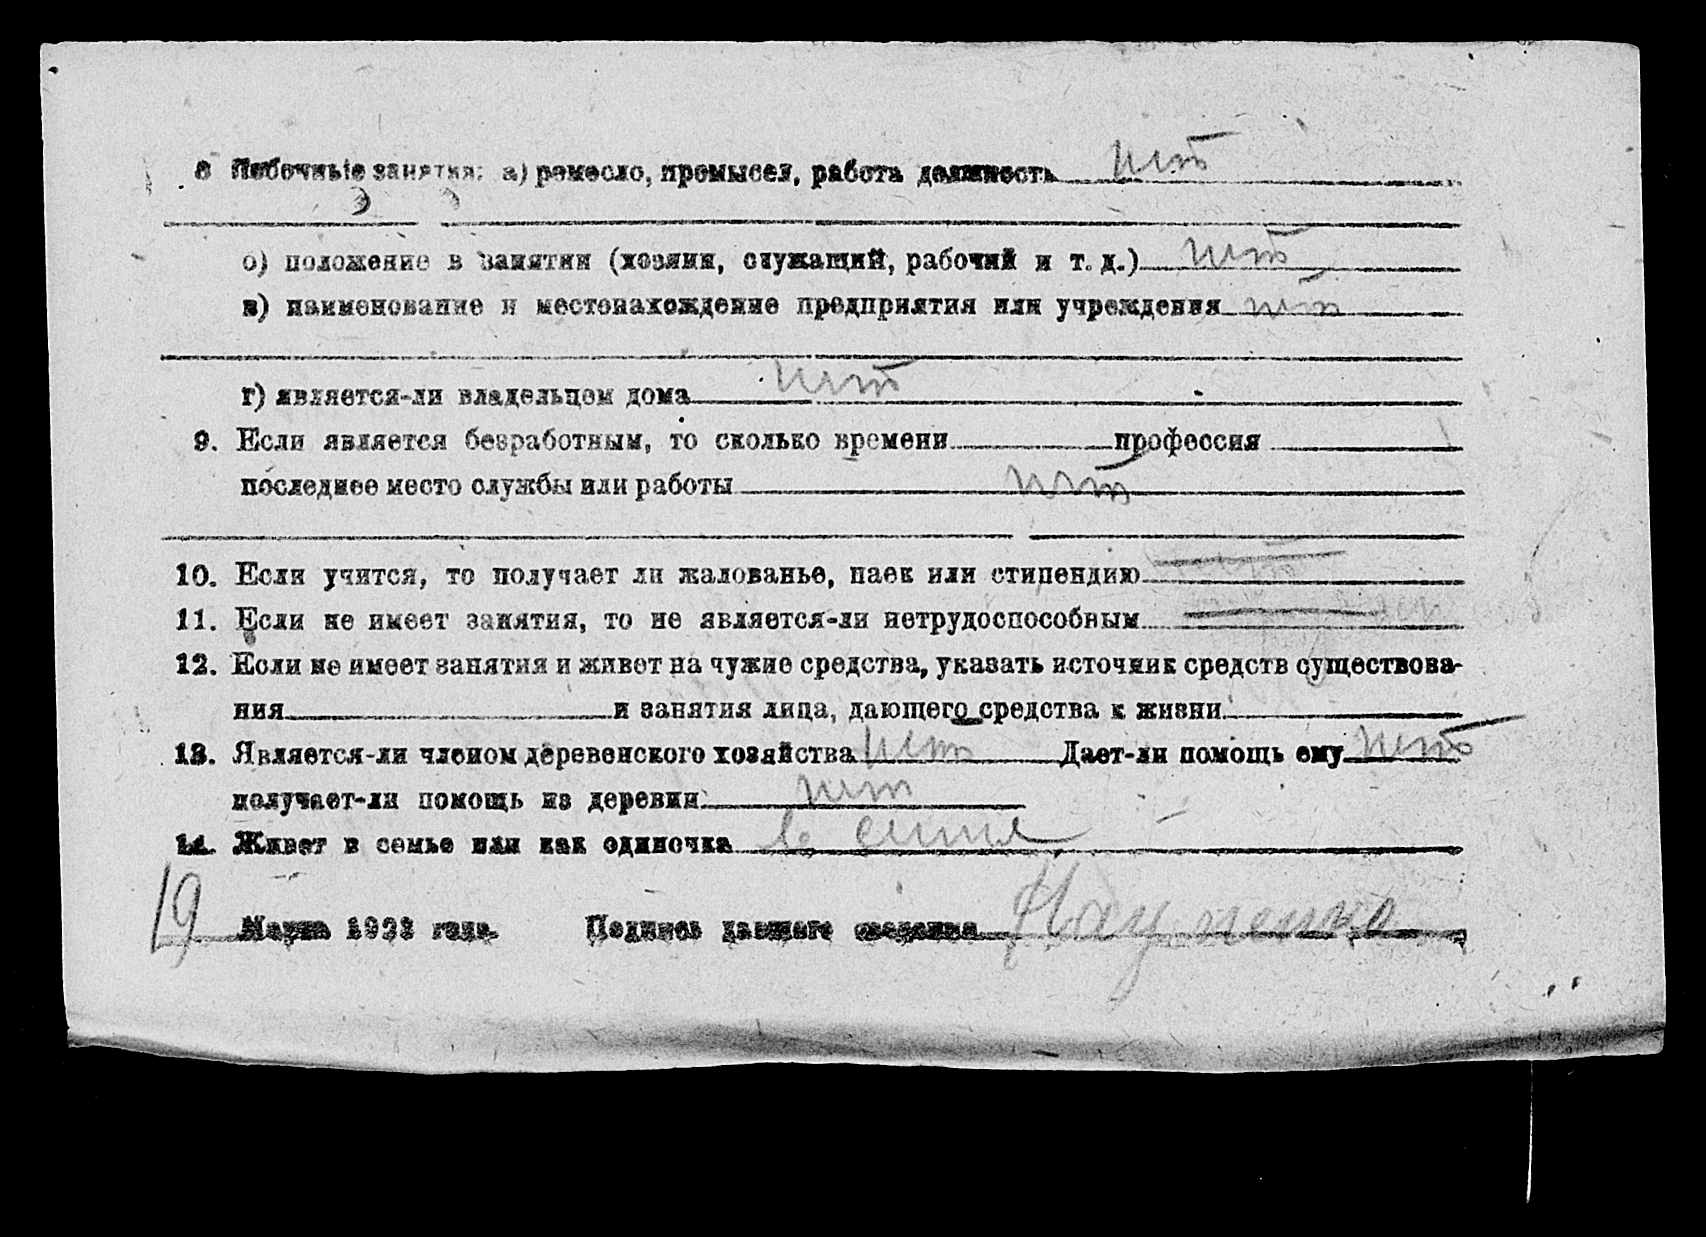 8 Побочные занятия: а) ремесло, промысел, работа должность нет
б) положение в занятии (хозяин, служащий, рабочий и т. д.) нет
в) наименование и местонахождение предприятия или учреждения нет
г) является-ли владельцем дома нет
9. Если является безработным, то сколько времени профессия
последнее место службы или работы нет
10. Если учится, то получает ли жалованье, паек или стипендию
11. Если не имеет занятия, то не является-ли нетрудоспособным
12. Если не имеет занятия и живет на чужие средства, указать источник средств существова-
ния и занятия лица, дающего средства к жизни
13. Является-ли членом деревенского хозяйства нет Дает-ли помощь ему нет
получает-ли помощь из деревни нет
14. Живет в семье или как одиночка в семье
19 Марта 1923 года. Подпись давшего сведения Науменко